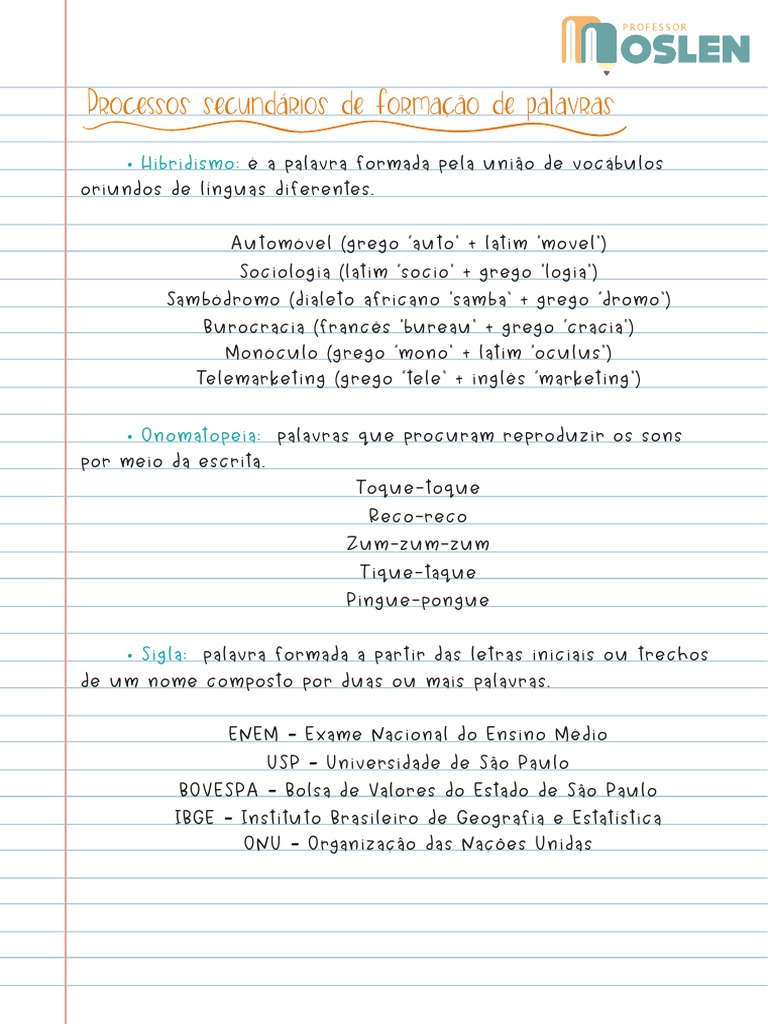 PROFESSOR
MOSLEN
Processos secundários de formação de palavras
• Hibridismo: é a palavra formada pela união de vocábulos
oriundos de línguas diferentes.
Automóvel (grego "auto" + latim "movel")
Sociologia (latim "socio" + grego "logia")
Sambódromo (dialeto africano "samba" + grego "dromo")
Burocracia (francês "bureau" + grego "cracia")
Monóculo (grego "mono" + latim "oculus")
Telemarketing (grego "tele" + inglês "marketing")
• Onomatopeia: palavras que procuram reproduzir os sons
por meio da escrita.
Toque-toque
Reco-reco
Zum-zum-zum
Tique-taque
Pingue-pongue
• Sigla: palavra formada a partir das letras iniciais ou trechos
de um nome composto por duas ou mais palavras.
ENEM - Exame Nacional do Ensino Médio
USP - Universidade de São Paulo
BOVESPA - Bolsa de Valores do Estado de São Paulo
IBGE - Instituto Brasileiro de Geografia e Estatística
ONU - Organização das Nações Unidas